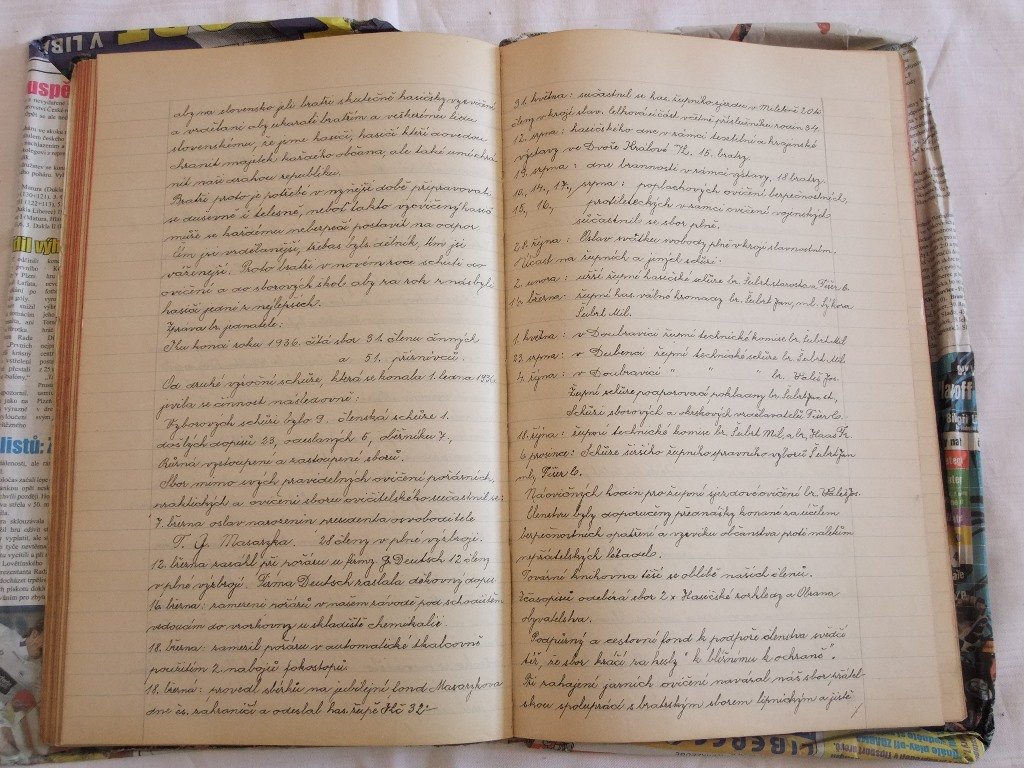 aby na slovensko jeli bratři skutečně hasičsky vycvičení
a vzdělaní aby ukázali bratřím a veškerému lidu
slovenskému, že jsme hasiči, hasiči kteří dovedou
chrániti majetek každého občana, ale také umí chrá
niti naši drahou republiku.
Bratři proto je potřebí v nynější době připravovati
se duševně i tělesně, neboť takto vycvičený hasič
může se každému nebezpečí postaviti na odpor
Čím jsi vzdělanější, třebas bylo dělník, tím jsi
váženější. Proto bratři v novém roce schůze do
cvičení a do sborových škol aby za rok z nás byli
hasiči jedni z nejlepších.
Zpráva br. jednatele:
Ku konci roku 1936. čítá sbor 34. členů činných
a 51. příznivců.
Od druhé výroční schůze, která se konala 1. ledna 1936
jevila se činnost následovně:
Výborových schůzí bylo 9. členská schůze 1.
došlých dopisů 23, odeslaných 6, oběžníků 7.,
Různá vystoupení a zastoupení sborů.
Sbor mimo svých pravidelných cvičení pořadových,
praktických a cvičení sboru cvičitelského súčastnil se:
7. března oslav narozenin presidenta osvoboditele
T. G. Masaryka. 28 členy v plné výzbroji.
12. března zasáhl při požáru u firmy G. Deutsch 12 členy
v plné výzbroji. Firma Deutsch zaslala děkovný dopis
16. března: zamezení požárů v našem závodě pod schodištěm
vedoucím do vzorkovny u skladiště chemikalií.
18. března: zamezil požáru v automatické tkalcovně
použitím 2. nabojů fokostopů.
18. března: provedl sbírku na jubilejní fond Masarykova
dne čs. zahraničí a odeslal has. župě Kč 32.-
31. května: súčastnil se has. župního sjezdu v Miletíně 20ti
členy v kroji slav. Celková účást včetně příslušníků rodin 34.
12. srpna: hasičského dne v rámci textilní a krajinské
výstavy ve Dvoře Králové n/L. 15. bratry.
19. srpna: dne brannosti v rámci výstavy, 18 bratry.
10., 14., 13., srpna: poplachových cvičení bezpečnostních,
15., 16., protileteckých v rámci cvičení vojenských
súčastnil se sbor plně.
28. října: Oslav svátku svobody plně v kroji slavnostním.
Účast na župních a jiných schůzí:
2. února: užší župní hasičské schůze br. Šubrt starosta a Fišr C.
14. března: župní has. valné hromady br. Šubrt Jan, ml. Sýkora
Šubrt Mil.
1. května: v Doubravici župní technické komise br. Šubrt Mil
23. srpna: v Dubenci župní technické schůze br. Šubrt Mil
4. října: v Doubravici " " " br. Haleš Jos.
Župní schůze podporovací pokladny br. Šubrt Jan st,
Schůzi sborových a okrskových vzdělavatelů Fišr C.
18. října: župní technické komise br. Šubrt Mil, a br, Haas Fr.
6. prosince: Schůze širšího župního správního výboru Šubrt Jan
ml, Fišr C.
Nácvičných hodin pro župní sjezdové cvičení br. Haleš Jos.
Členstvu byly doporučeny přednášky konané za účelem
bezpečnostních opatření a výcviku občanstva proti náletům
nepřátelských letadel.
Tovární knihovna těší se oblibě našich členů.
Z časopisů odebírá sbor 2 x Hasičské rozhledy a Obrana
obyvatelstva.
Podpůrný a cestovní fond k podpoře členstva svědčí
též, že sbor kráčí za hesly "k bližnímu k ochraně".
Při zahájení jarních cvičení navázal náš sbor přátel-
skou spolupráci s bratrským sborem lipnickým a jistě